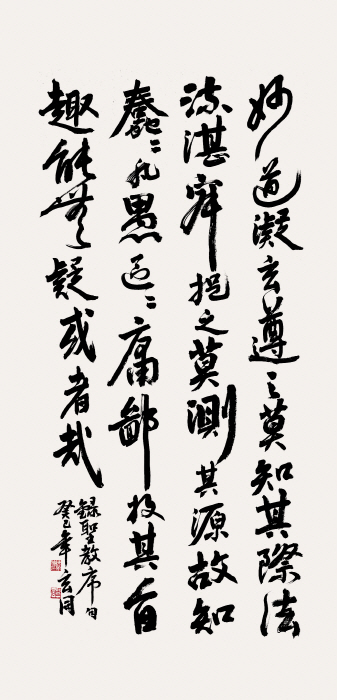 妙道凝玄遵之莫知其際法
流湛寂挹之莫測其源故知
蠢蠢凡愚區區庸鄙投其旨
趣能無疑惑者哉
錄聖教序句
癸巳年玄同